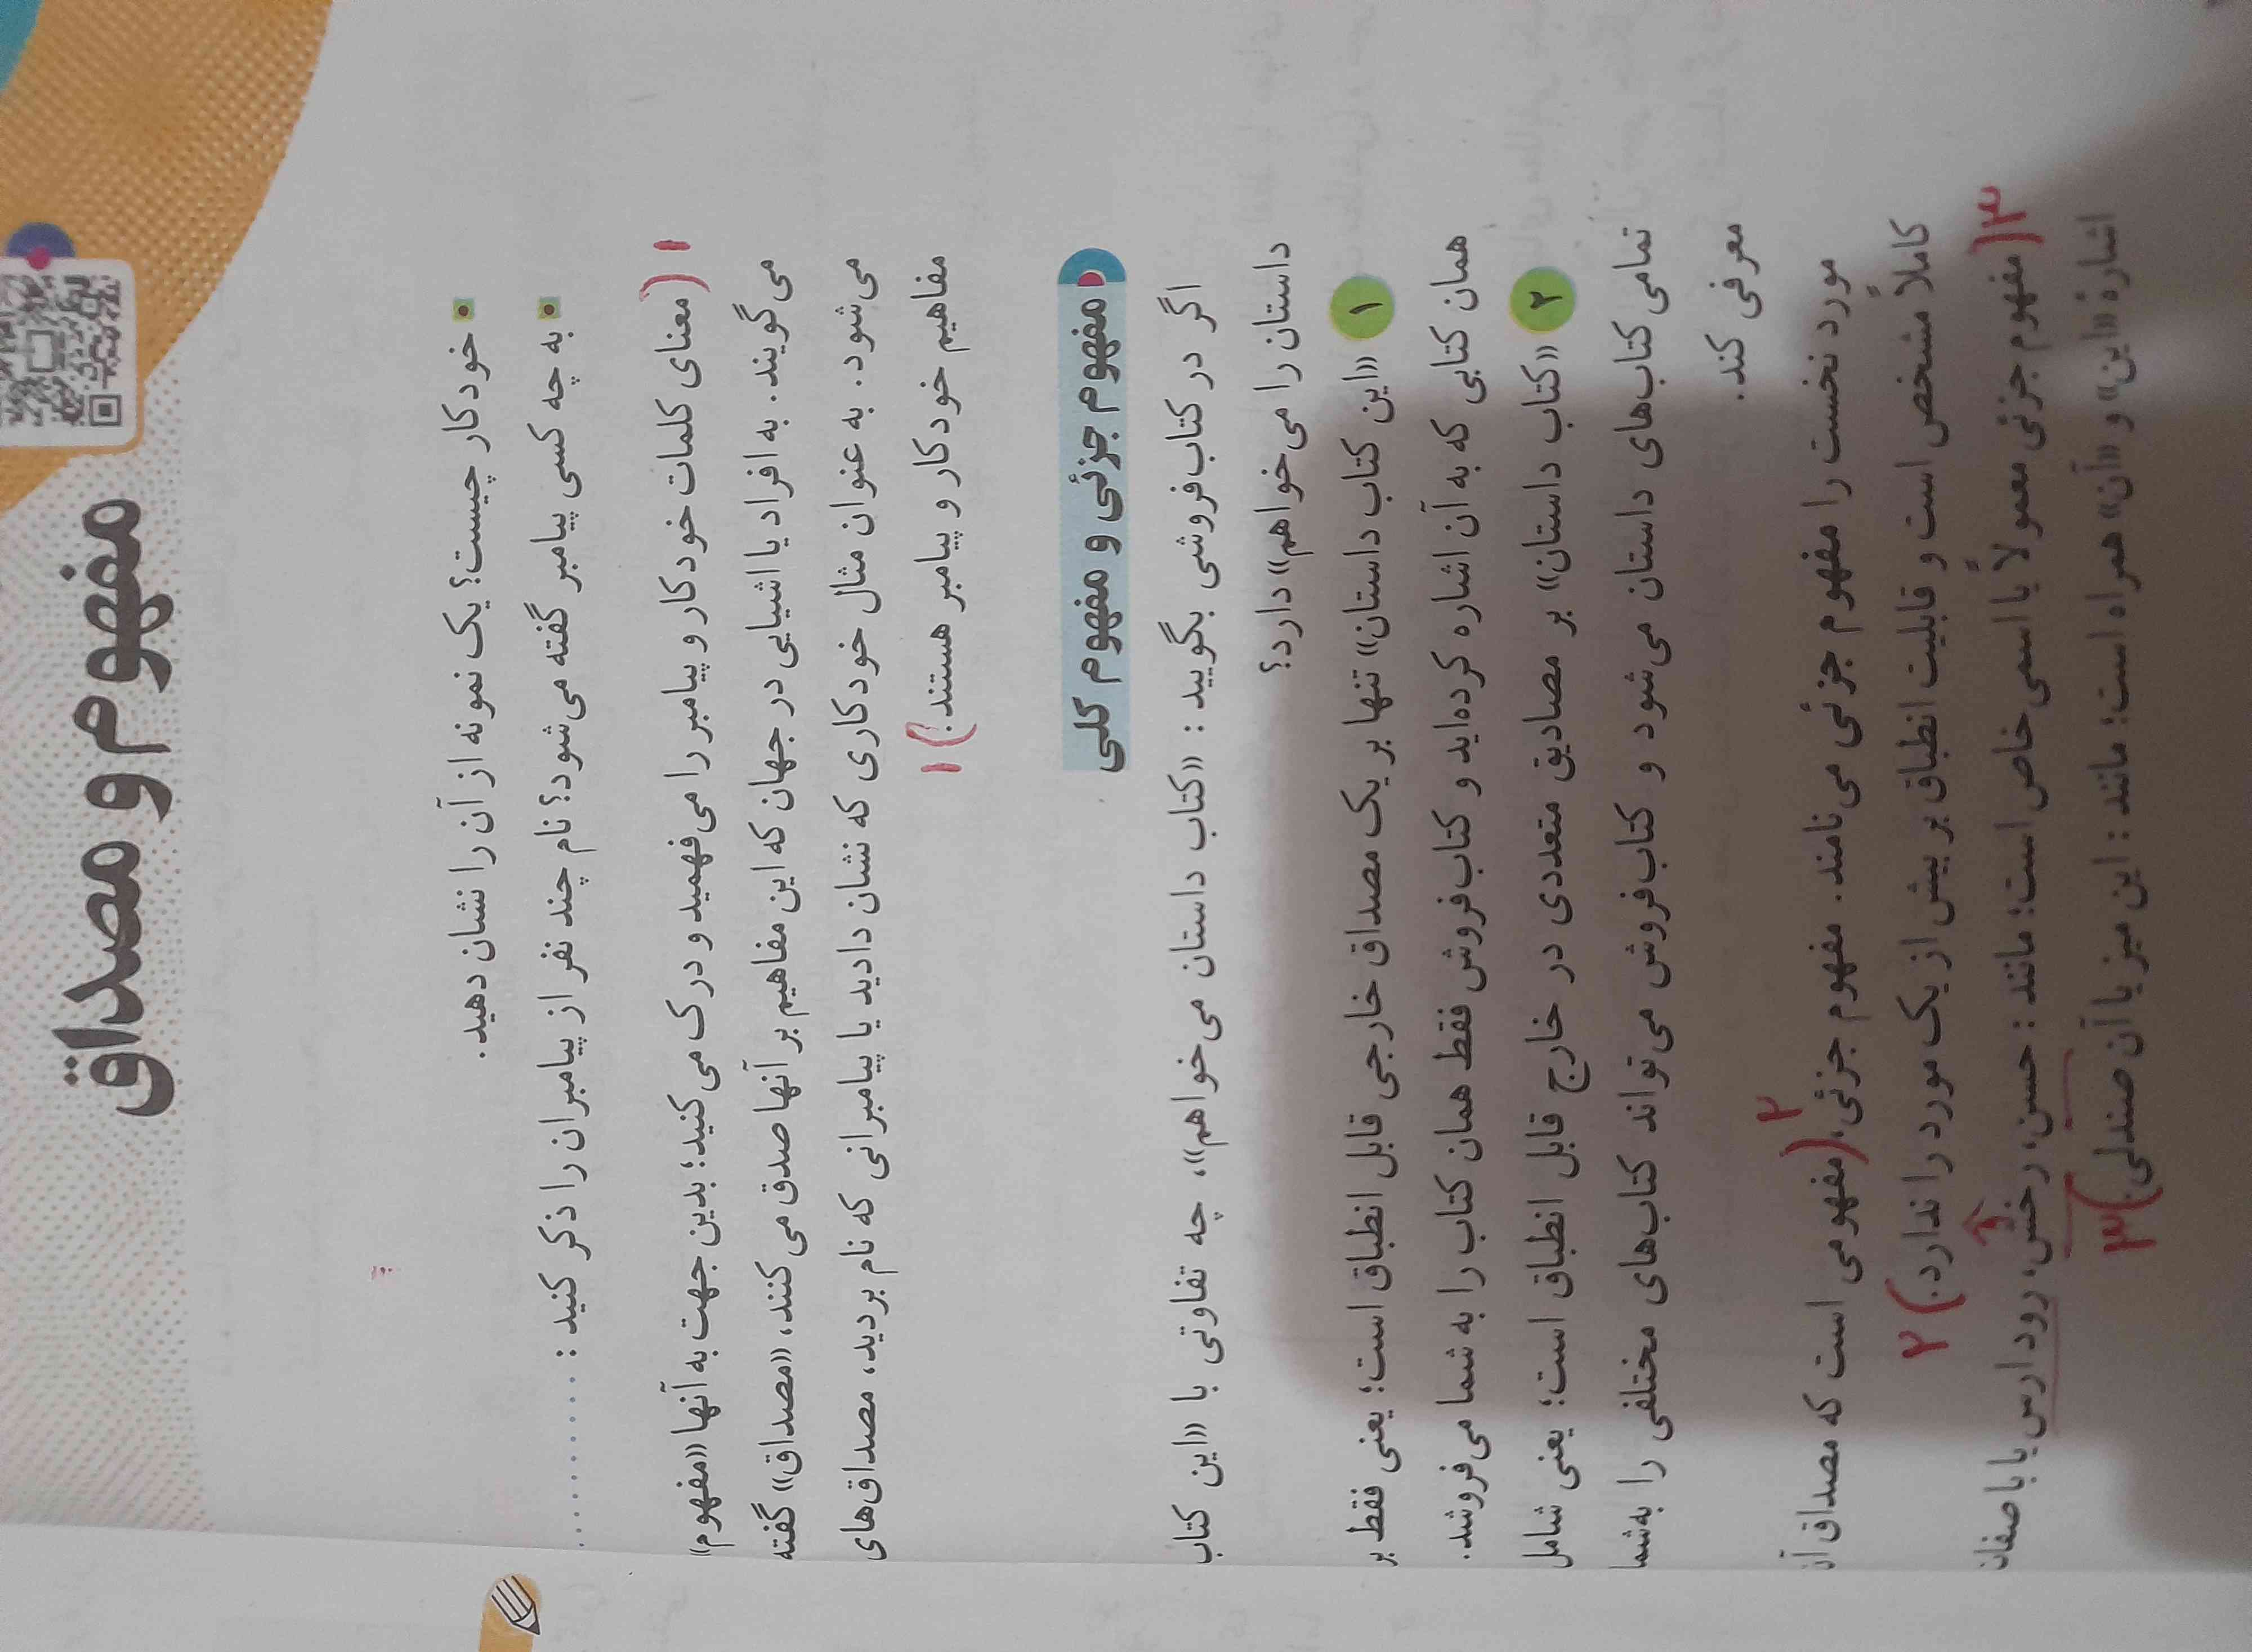 مفهوم و مصداق
خودکار چیست؟ یک نمونه از آن را نشان دهید.
به چه کسی پیامبر گفته می‌شود؟ نام چند نفر از پیامبران را ذکر کنید : ..........
۱ (معنای کلمات خودکار و پیامبر را می‌فهمید و درک می‌کنید؛ بدین جهت به آنها «مفهوم»
می‌گویند. به افراد یا اشیایی در جهان که این مفاهیم بر آنها صدق می‌کنند، «مصداق» گفته
می‌شود. به عنوان مثال خودکاری که نشان دادید یا پیامبرانی که نام بردید، مصداق‌های
مفاهیم خودکار و پیامبر هستند.) ۱
مفهوم جزئی و مفهوم کلی
اگر در کتاب‌فروشی بگویید : «کتاب داستان می‌خواهم»، چه تفاوتی با «این کتاب
داستان را می‌خواهم» دارد؟
۱ «این کتاب داستان» تنها بر یک مصداق خارجی قابل انطباق است؛ یعنی فقط بر
همان کتابی که به آن اشاره کرده‌اید و کتاب‌فروش فقط همان کتاب را به شما می‌فروشد.
۲ «کتاب داستان» بر مصادیق متعددی در خارج قابل انطباق است؛ یعنی شامل
تمامی کتاب‌های داستان می‌شود و کتاب‌فروش می‌تواند کتاب‌های مختلفی را به‌شما
معرفی کند.
مورد نخست را مفهوم جزئی می‌نامند. مفهوم جزئی، ۲ (مفهومی است که مصداق آن
کاملاً مشخص است و قابلیت انطباق بر بیش از یک مورد را ندارد.) ۲
۳ (مفهوم جزئی معمولاً یا اسمی خاص است؛ مانند : حسن، رخش، رود ارس یا با صفات
اشارهٔ «این» و «آن» همراه است؛ مانند : این میز یا آن صندلی.) ۳